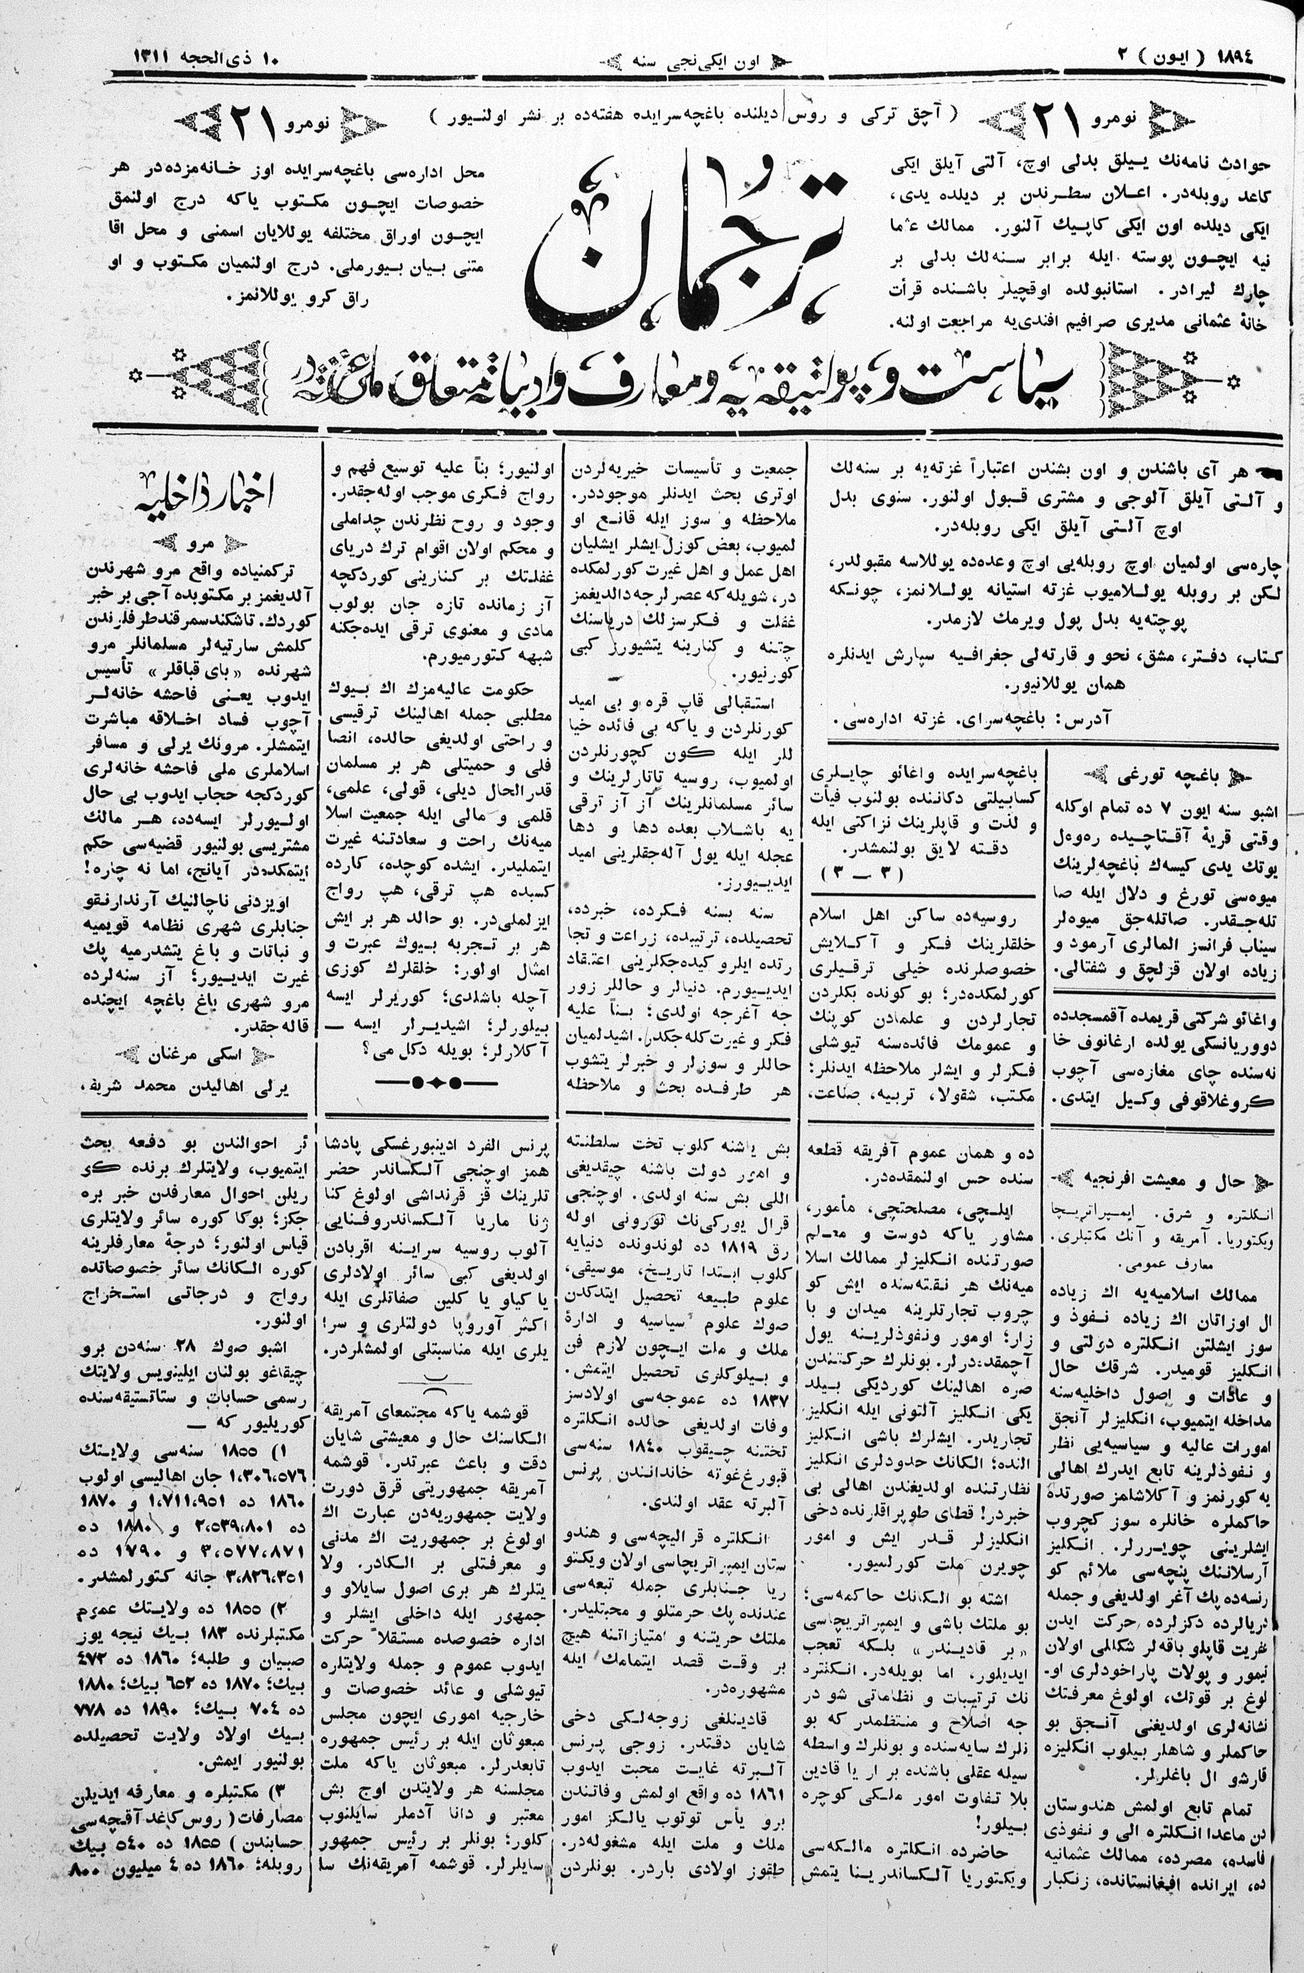 ١٨٩٤ ( ایون ) ٢
اون ایكی نجی سنه
١٠ ذی الحجه ١٣١١
نومرو ٢١
( آچق تركی و روس دیلنده باغچه سرایده هفته ده بر نشر اولنیور )
نومرو ٢١
حوادث نامه نك ییلق بدلی اوچ، آلتی آیلق ایكی
كاغد روبله در. اعلان سطرندن بر دیلده یدی،
ایكی دیلده اون ایكی كاپیك آلنور. ممالك عثما
نیه ایچون پوسته ایله برابر سنه لك بدلی بر
چارك لیرادر. استانبولده اوقچیلر باشنده قرأت
خانهٔ عثمانی مدیری صرافیم افندی یه مراجعت اولنه.
ترجمان
محل اداره سی باغچه سرایده اوز خانه مزده در هر
خصوصات ایچون مكتوب یاكه درج اولنمق
ایچون اوراق مختلفه یوللایان اسمنی و محل اقا
متنی بیان بیورملی. درج اولنمیان مكتوب و او
راق كرو یوللانمز.
سیاست و پولتیقه یه و معارف و ادبیاته متعلق
هر آی باشندن و اون بشندن اعتباراً غزته یه بر سنه لك
و آلتی آیلق آلوجی و مشتری قبول اولنور. سنوی بدل
اوچ آلتی آیلق ایكی روبله در.
چاره سی اولمیان اوچ روبله یی اوچ وعده ده یوللاسه مقبولدر،
لكن بر روبله یوللامیوب غزته استیانه یوللانمز، چونكه
پوچته یه بدل پول ویرمك لازمدر.
كتاب، دفتر، مشق، نحو و قارته لی جغرافیه سپارش ایدنلره
همان یوللانیور.
آدرس: باغچه سرای. غزته اداره سی.
باغچه تورغی
اشبو سنه ایون ٧ ده تمام اوكله
وقتی قریهٔ آقتاچیده ره وه ل
یوتك یدی كیسه ك باغچه لرینك
میوه سی تورغ و دلال ایله صا
تله جقدر. صاتله جق میوه لر
سیناپ فرانسز المالری آرمود و
زیاده اولان قزلچق و شفتالی.
واغائو شركتی قریمده آقمسجدده
دووریانسكی یولده ارغانوف خا
نه سنده چای مغازه سی آچوب
كروغلاقوفی وكیل ایتدی.
باغچه سرایده واغائو چایلری
كسابیلتی دكاننده بولنوب فیأت
و لذت و قاپلرینك نزاكتی ایله
دقته لایق بولنمشدر.
( ٣ — ٣ )
روسیه ده ساكن اهل اسلام
خلقلرینك فكر و آكلایش
خصوصلرنده خیلی ترقیلری
كورلمكده در؛ بو كونده بكلردن
تجارلردن و علمادن كوپنك
و عمومك فائده سنه تیوشلی
فكرلر و ایشلر ملاحظه ایدنلر؛
مكتب، شقولا، تربیه، صناعت،
جمعیت و تأسیسات خیریه لردن
اوتری بحث ایدنلر موجوددر.
ملاحظه و سوز ایله قانع او
لمیوب، بعض كوزل ایشلر ایشلیان
اهل عمل و اهل غیرت كورلمكده
در، شویله كه عصرلرجه دالدیغمز
غفلت و فكرسزلك دریاسنك
چتنه و كنارینه یتشیورز كبی
كورنیور.
استقبالی قاپ قره و بی امید
كورنلردن و یاكه بی فائده خیا
للر ایله كون كچورنلردن
اولمیوب، روسیه تاتارلرینك و
سائر مسلمانلرینك آز آز ترقی
یه باشلاب بعده دها و دها
عجله ایله یول آله جقلرینی امید
ایدییورز.
سنه بسنه فكرده، خبرده،
تحصیلده، ترتیبده، زراعت و تجا
رتده ایلرو كیده جكلرینی اعتقاد
ایدییورم. دنیالر و حاللر زور
جه آغرجه اولدی؛ بناً علیه
فكر و غیرت كله جكدر. اشیدلمیان
حاللر و سوزلر و خبرلر یتشوب
هر طرفده بحث و ملاحظه
اولنیور؛ بناً علیه توسیع فهم و
رواج فكری موجب اوله جقدر.
وجود و روح نظرندن چداملی
و محكم اولان اقوام ترك دریای
غفلتك بر كنارینی كوردكچه
آز زمانده تازه جان بولوب
مادی و معنوی ترقی ایده جكنه
شبهه كتورمیورم.
حكومت عالیه مزك اك بیوك
مطلبی جمله اهالینك ترقیسی
و راحتی اولدیغی حالده، انصا
فلی و حمیتلی هر بر مسلمان
قدرالحال دیلی، قولی، علمی،
قلمی و مالی ایله جمعیت اسلا
میه نك راحت و سعادتنه غیرت
ایتملیدر. ایشده كوچده، كارده
كسبده هپ ترقی، هپ رواج
ایزلملی در. بو حالد هر بر ایش
هر بر تجربه بیوك عبرت و
امثال اولور: خلقلرك كوزی
آچله باشلدی؛ كوریرلر ایسه
بیلورلر؛ اشیدیرلر ایسه —
آكلارلر؛ بویله دكل می؟
اخبار داخلیه
مرو
تركمنیاده واقع مرو شهرندن
آلدیغمز بر مكتوبده آجی بر خبر
كوردك. تاشكند سمرقند طرفلرندن
كلمش سارتیه لر مسلمانلر مرو
شهرنده «بای قباقلر» تأسیس
ایدوب یعنی فاحشه خانه لر
آچوب فساد اخلاقه مباشرت
ایتمشلر. مرونك یرلی و مسافر
اسلاملری ملی فاحشه خانه لری
كوردكجه حجاب ایدوب بی حال
اولیورلر ایسه ده، هر مالك
مشتریسی بولنیور قضیه سی حكم
ایتمكده در آیانج، اما نه چاره!
اویزدنی ناچالنیك آرندارنقو
جنابلری شهری نظامه قویمیه
و نباتات و باغ یتشدرمیه پك
غیرت ایدییور؛ آز سنه لرده
مرو شهری باغ باغچه ایچنده
قاله جقدر.
اسكی مرغنان
یرلی اهالیدن محمد شریف،
حال و معیشت افرنجیه
انكلتره و شرق. ایمپراتریچا
ویكتوریا. آمریقه و آنك مكتبلری.
معارف عمومی.
ممالك اسلامیه یه اك زیاده
ال اوزاتان اك زیاده نفوذ و
سوز ایشلتن انكلتره دولتی و
انكلیز قومیدر. شرقك حال
و عادات و اصول داخلیه سنه
مداخله ایتمیوب، انكلیزلر آنجق
امورات عالیه و سیاسیه یی نظر
و نفوذلرینه تابع ایدرك اهالی
یه كورنمز و آكلاشلمز صورتده
حاكملره خانلره سوز كچروب
ایشلرینی چویررلر. انكلیز
آرسلاننك پنچه سی ملائم كو
رنسه ده پك آغر اولدیغی و جمله
دریالرده دكزلرده حركت ایدن
عفریت قاپلو باقه لر شكللی اولان
تیمور و پولات پاراخودلری او
لوغ بر قوتك، اولوغ معرفتك
نشانه لری اولدیغنی آنجق بو
حاكملر و شاهلر بیلوب انكلیزه
قارشو ال باغلرلر.
تمام تابع اولمش هندوستان
دن ماعدا انكلتره الی و نفوذی
فاسده، مصرده، ممالك عثمانیه
ده، ایرانده افغانستانده، زنكبار
ده و همان عموم آفریقه قطعه
سنده حس اولنمقده در.
ایلچی، مصلحتچی، مأمور،
مشاور یاكه دوست و معلم
صورتنده انكلیزلر ممالك اسلا
میه نك هر نقته سنده ایش كو
چروب تجارتلرینه میدان و با
زار؛ اومور و نفوذلرینه یول
آچمقده درلر. بونلرك حركتندن
صره اهالینك كوردیكی بیلد
یكی انكلیز آلتونی ایله انكلیز
تجاریدر. ایشلرك باشی انكلیز
النده؛ الكانك حدودلری انكلیز
نظارتنده اولدیغندن اهالی بی
خبردر! قطای طوپراقلرنده دخی
انكلیزلر قدر ایش و امور
چویرن ملت كورلمیور.
اشته بو الكانك حاكمه سی؛
بو ملتك باشی و ایمپراتریچاسی
«بر قادیندر» بلكه تعجب
ایدیلور، اما بویله در. انكلتره
نك ترتیبات و نظاماتی شو در
جه اصلاح و منتظمدر كه بو
نلرك سایه سنده و بونلرك واسطه
سیله عقلی باشنده بر ار یا قادین
بلا تفاوت امور ملكی كوچره
بیلور!
حاضرده انكلتره مالكه سی
ویكتوریا آلكساندرینا یتمش
بش یاشنه كلوب تخت سلطنته
و امور دولت باشنه چیقدیغی
اللی بش سنه اولدی. اوچنجی
قرال یوركی نك تورونی اوله
رق ١٨١٩ ده لوندونده دنیایه
كلوب ابتدا تاریخ، موسیقی،
علوم طبیعه تحصیل ایتدكدن
صوك علوم سیاسیه و ادارهٔ
ملك و ملت ایچون لازم فن
و بیلوكلری تحصیل ایتمش.
١٨٣٧ ده عموجه سی اولادسز
وفات اولدیغی حالده انكلتره
تختنه چیقوب ١٨٤٠ سنه سی
قبورغ غوته خانداننده پرنس
آلبرته عقد اولندی.
انكلتره قرالیچه سی و هندو
ستان ایمپراتریچاسی اولان ویكتو
ریا جنابلری جمله تبعه سی
عندنده پك حرمتلو و محبتلیدر.
ملتك حریتنه و امتیازاتنه هیچ
بر وقت قصد ایتمامك ایله
مشهوره در.
قادینلغی زوجه لكی دخی
شایان دقتدر. زوجی پرنس
آلبرته غایت محبت ایدوب
١٨٦١ ده واقع اولمش وفاتندن
برو یأس توتوب یالكز امور
ملك و ملت ایله مشغوله در.
طقوز اولادی باردر. بونلردن
پرنس الفرد ادینبورغسكی پادشا
همز اوچنجی آلكساندر حضر
تلرینك قز قرنداشی اولوغ كنا
ژنا ماریا آلكساندروفنایی
آلوب روسیه سراینه اقربادن
اولدیغی كبی سائر اولادلری
یا كیاو یا كلین صفاتلری ایله
اكثر آوروپا دولتلری و سرا
یلری ایله مناسبتلی اولمشلردر.
قوشمه یاكه مجتمعای آمریقه
الكاسنك حال و معیشتی شایان
دقت و باعث عبرتدر. قوشمه
آمریقه جمهوریتی قرق دورت
ولایت جمهوریه دن عبارت اك
اولوغ بر جمهوریت اك مدنی
و معرفتلی بر الكادر. ولا
یتلرك هر بری اصول سایلاو و
جمهور ایله داخلی ایشلر و
اداره خصوصده مستقلاً حركت
ایدوب عموم و جمله ولایتلره
تیوشلی و عائد خصوصات و
خارجیه اموری ایچون مجلس
مبعوثان ایله بر رئیس جمهوره
تابعدرلر. مبعوثان یاكه ملت
مجلسنه هر ولایتدن اوچ بش
معتبر و دانا آدملر سایلنوب
كلور؛ بونلر بر رئیس جمهور
سایلرلر. قوشمه آمریقه نك سا
ئر احوالندن بو دفعه بحث
ایتمیوب، ولایتلرك برنده كو
ریلن احوال معارفدن خبر بره
جكز؛ بوكا كوره سائر ولایتلری
قیاس اولنور؛ درجهٔ معارفلرینه
كوره الكانك سائر خصوصاتده
رواج و درجاتی استخراج
اولنور.
اشبو صوك ٢٨ سنه دن برو
چیقاغو بولنان ایلینویس ولایتك
رسمی حسابات و ستاتستیقه سنده
كوریلیور كه —
١) ١٨٥٥ سنه سی ولایتك
١،٣٠٦،٥٧٦ جان اهالیسی اولوب
١٨٦٠ ده ١،٧١١،٩٥١ و ١٨٧٠
ده ٢،٥٣٩،٨٠١ و ١٨٨٠ ده
٣،٥٧٧،٨٧١ و ١٧٩٠ ده
٣،٨٢٦،٣٥١ جانه كتورلمشدر.
٢) ١٨٥٥ ده ولایتك عموم
مكتبلرنده ١٨٣ بیك نیجه یوز
صبیان و طلبه؛ ١٨٦٠ ده ٤٧٢
بیك؛ ١٨٧٠ ده ٦٥٢ بیك؛ ١٨٨٠
ده ٧٠٤ بیك؛ ١٨٩٠ ده ٧٧٨
بیك اولاد ولایت تحصیلده
بولنیور ایمش.
٣) مكتبلره و معارفه ایدیلن
مصارفات (روس كاغد آقچه سی
حسابندن) ١٨٥٥ ده ٥٤٠ بیك
روبله؛ ١٨٦٠ ده ٤ میلیون ٨٠٠